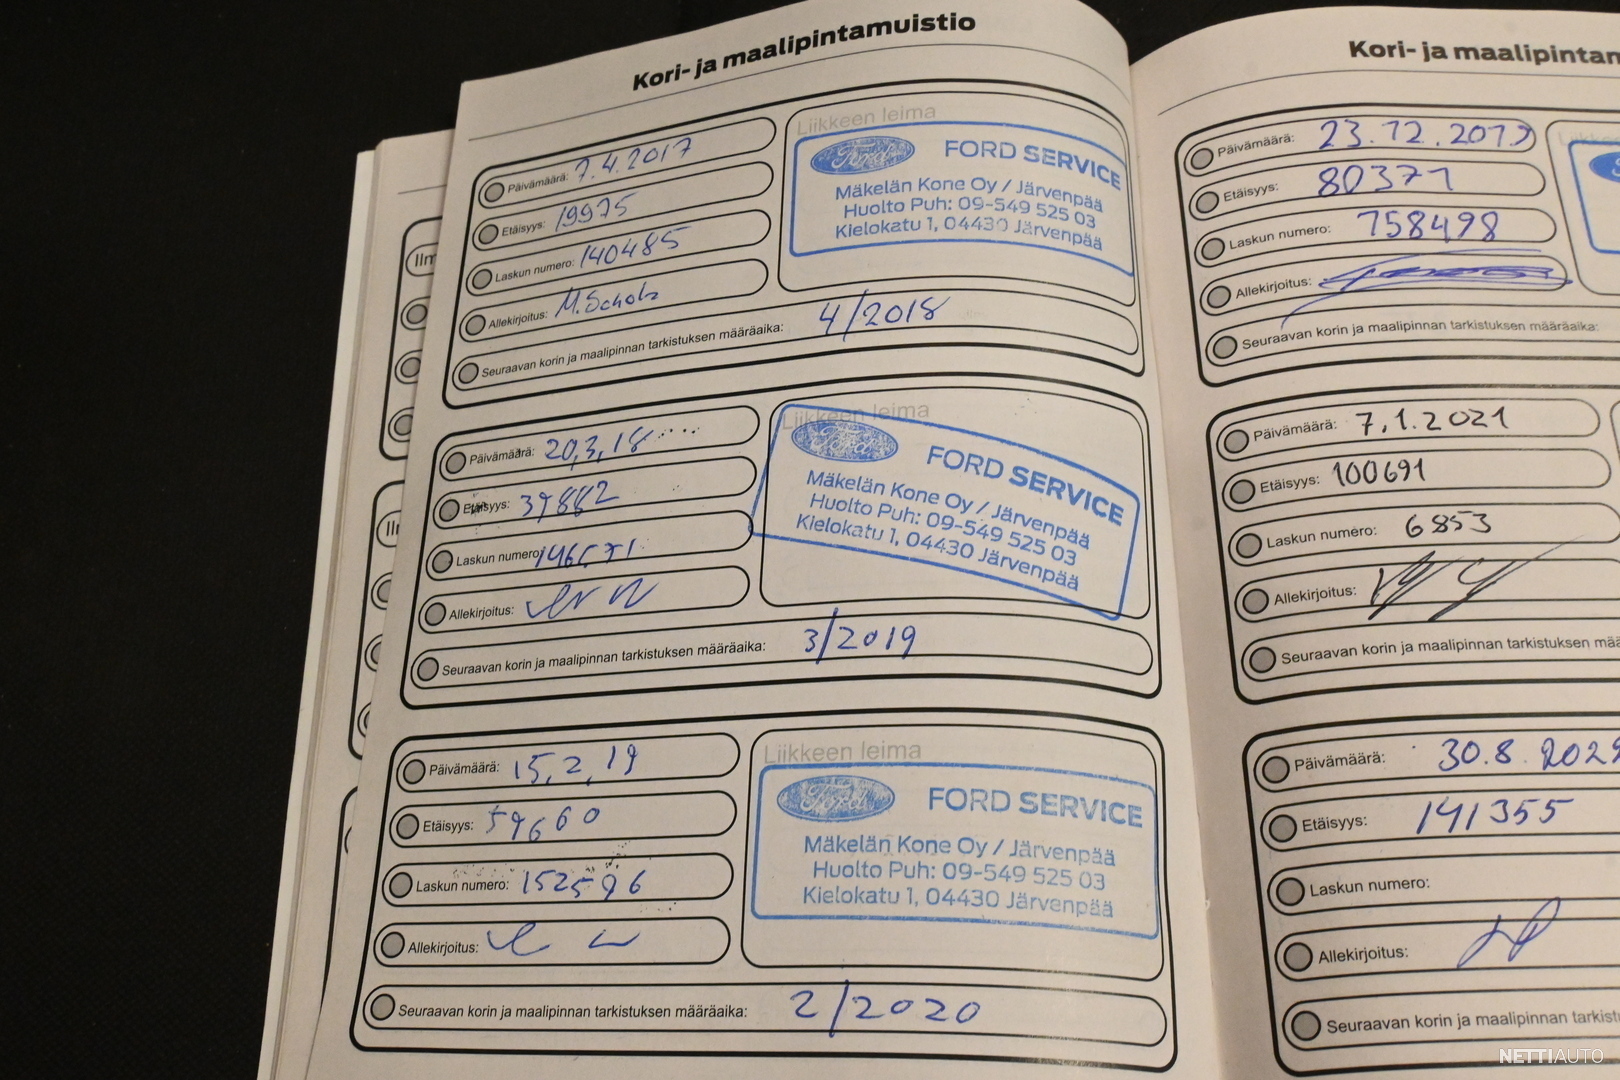 Kori- ja maalipintamuistio
Päivämäärä: 7.4.2017
Etäisyys: 19975
Laskun numero: 140485
Allekirjoitus:
Seuraavan korin ja maalipinnan tarkistuksen määräaika: 4/2018
Liikkeen leima
Ford FORD SERVICE
Mäkelän Kone Oy / Järvenpää
Huolto Puh: 09-549 525 03
Kielokatu 1, 04430 Järvenpää
Päivämäärä: 20,3,18
Etäisyys: 39882
Laskun numero:
Allekirjoitus:
Seuraavan korin ja maalipinnan tarkistuksen määräaika: 3/2019
Liikkeen leima
Ford FORD SERVICE
Mäkelän Kone Oy / Järvenpää
Huolto Puh: 09-549 525 03
Kielokatu 1, 04430 Järvenpää
Päivämäärä: 15,2,19
Etäisyys: 59660
Laskun numero: 152596
Allekirjoitus:
Seuraavan korin ja maalipinnan tarkistuksen määräaika: 2/2020
Liikkeen leima
Ford FORD SERVICE
Mäkelän Kone Oy / Järvenpää
Huolto Puh: 09-549 525 03
Kielokatu 1, 04430 Järvenpää
Kori- ja maalipintam
Päivämäärä: 23.12.2019
Etäisyys: 80371
Laskun numero: 758498
Allekirjoitus:
Seuraavan korin ja maalipinnan tarkistuksen määräaika:
Päivämäärä: 7.1.2021
Etäisyys: 100691
Laskun numero: 6853
Allekirjoitus:
Seuraavan korin ja maalipinnan tarkistuksen mää
Päivämäärä: 30.8.2022
Etäisyys: 141355
Laskun numero:
Allekirjoitus:
Seuraavan korin ja maalipinnan tarkist
Ilm
Ilm
NETTIAUTO